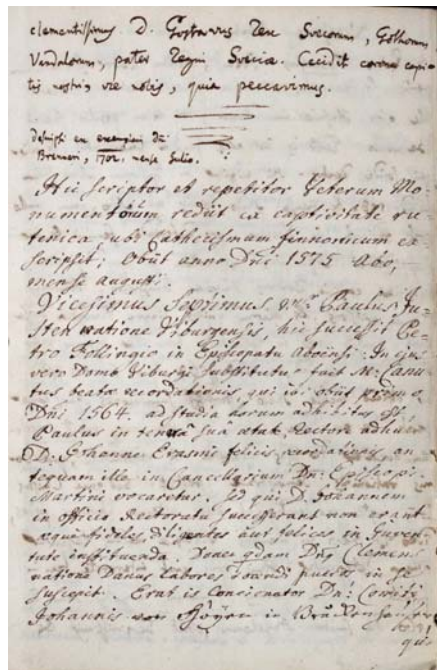 clementissimus D. Gostavus Rex Svecorum, Gothorum
Vandalorum, pater Regni Sveciæ. Cecidit corona capi-
tis nostri, væ nobis, quia peccavimus.
Descripsi ex exemplari
Brenneri, 1702, mense Julio.
Hic scriptor et repetitor Veterum Mo-
numentorum rediit ex captivitate ru-
tenica, ubi Cathechismum finnonicum ex-
scripsit; Obiit anno Dni 1575 Abo,
mense Augusti.
Vicesimus Septimus. Mr. Paulus Ju-
sten natione Viburgensis, hic successit Pe-
tro Follingio in Episcopatu Aboensi. In ejus
vero Domo Viburgi Substitutus fuit M. Canu-
tus beatæ recordationis, qui ibi obiit primo
Dni 1564. ad studia horum adhibitus est,
Paulus in tenera sua ætat, Rectore adhuc
D. Johanne Erasmi felicis recordationis, an-
tequam ille in Cancellarium Dn. Episcopi
Martini vocaretur. Sed qui D. Johannem
in officio Rectoratu successerant non erant
æqui fideles, diligentes aut felices in juven-
tute instituenda. Donec qdam Dns Clemens
natione Danus labores docendi pueros in se
suscepit. Erat is Concionator Dni Comitis
Johannis von Høyen in
qui